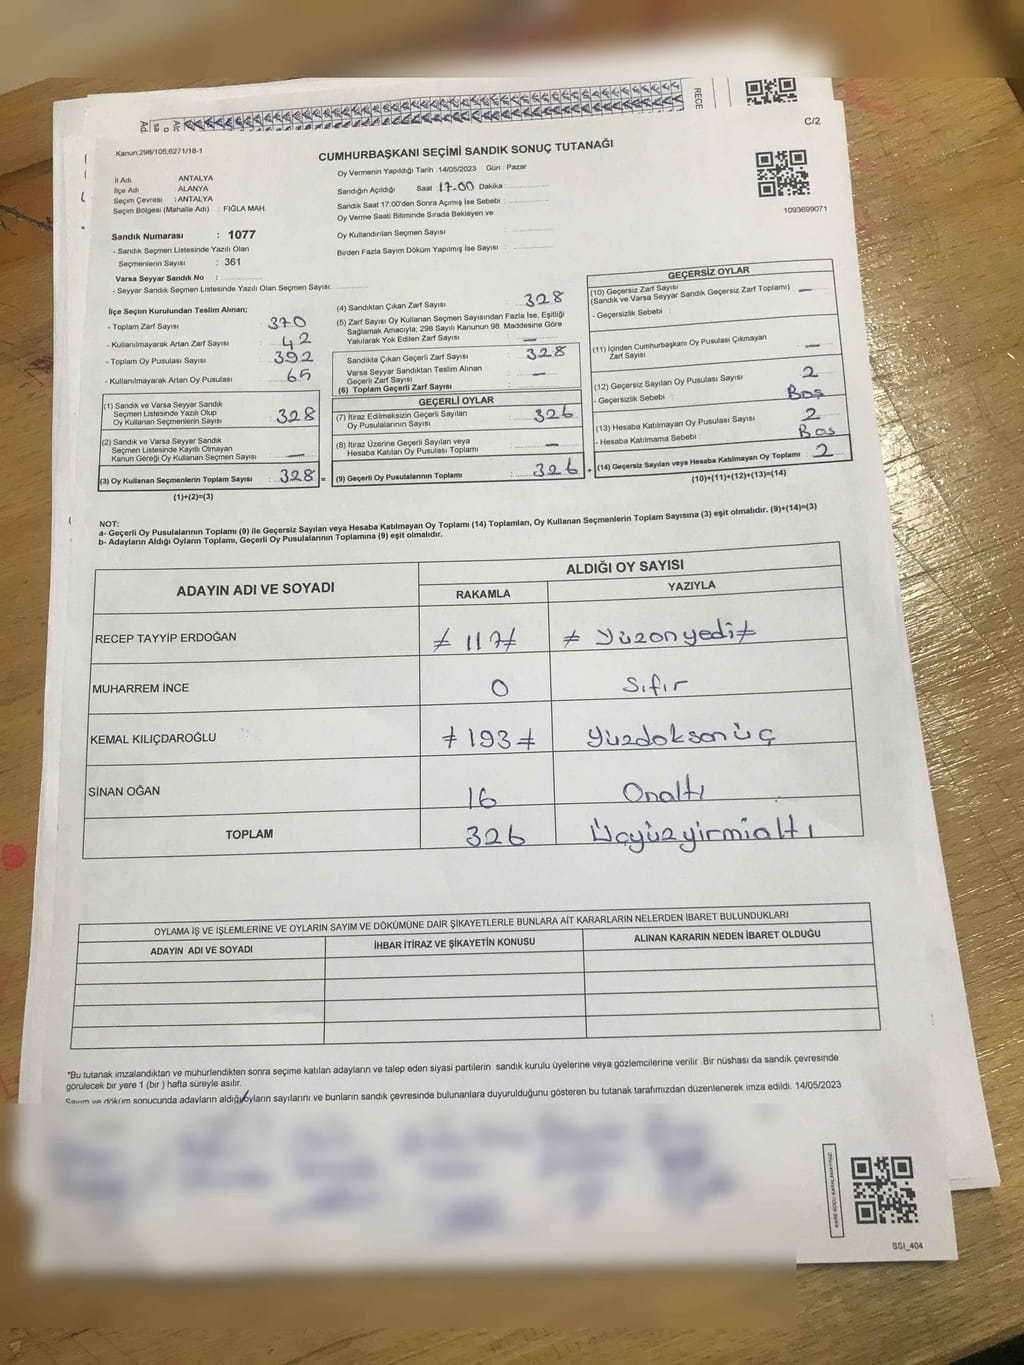 RECE
C/2
Kanun:298/105,6271/18-1
CUMHURBAŞKANI SEÇİMİ SANDIK SONUÇ TUTANAĞI
1093699071
İl Adı ANTALYA
İlçe Adı ALANYA
Seçim Çevresi : ANTALYA
Seçim Bölgesi (Mahalle Adı) : FIĞLA MAH.
Sandık Numarası : 1077
- Sandık Seçmen Listesinde Yazılı Olan
Seçmenlerin Sayısı : 361
Varsa Seyyar Sandık No :
- Seyyar Sandık Seçmen Listesinde Yazılı Olan Seçmen Sayısı:
Oy Vermenin Yapıldığı Tarih 14/05/2023 Gün : Pazar
Sandığın Açıldığı Saat 17.00 Dakika :
Sandık Saat 17.00'den Sonra Açımış İse Sebebi :
Oy Verme Saati Bitiminde Sırada Bekleyen ve
Oy Kullandırılan Seçmen Sayısı :
Birden Fazla Sayım Döküm Yapılmış İse Sayısı :
İlçe Seçim Kurulundan Teslim Alınan;
- Toplam Zarf Sayısı 370
- Kullanılmayarak Artan Zarf Sayısı : 42
- Toplam Oy Pusulası Sayısı 392
- Kullanılmayarak Artan Oy Pusulası : 65
(1) Sandık ve Varsa Seyyar Sandık
Seçmen Listesinde Yazılı Olup
Oy Kullanan Seçmenlerin Sayısı : 328
(2) Sandık ve Varsa Seyyar Sandık
Seçmen Listesinde Kayıtlı Olmayan
Kanun Gereği Oy Kullanan Seçmen Sayısı : —
(3) Oy Kullanan Seçmenlerin Toplam Sayısı : 328 =
(1)+(2)=(3)
(4) Sandıktan Çıkan Zarf Sayısı : 328
(5) Zarf Sayısı Oy Kullanan Seçmen Sayısından Fazla İse, Eşitliği
Sağlamak Amacıyla; 298 Sayılı Kanunun 98. Maddesine Göre
Yakılarak Yok Edilen Zarf Sayısı : —
Sandıkta Çıkan Geçerli Zarf Sayısı : 328
Varsa Seyyar Sandıktan Teslim Alınan
Geçerli Zarf Sayısı : —
(6) Toplam Geçerli Zarf Sayısı :
GEÇERLİ OYLAR
(7) İtiraz Edilmeksizin Geçerli Sayılan
Oy Pusulalarının Sayısı : 326
(8) İtiraz Üzerine Geçerli Sayılan veya
Hesaba Katılan Oy Pusulası Toplamı : —
(9) Geçerli Oy Pusulalarının Toplamı : 326 +
GEÇERSİZ OYLAR
(10) Geçersiz Zarf Sayısı
(Sandık ve Varsa Seyyar Sandık Geçersiz Zarf Toplamı) —
- Geçersizlik Sebebi :
(11) İçinden Cumhurbaşkanı Oy Pusulası Çıkmayan
Zarf Sayısı : —
(12) Geçersiz Sayılan Oy Pusulası Sayısı : 2
- Geçersizlik Sebebi : Boş
(13) Hesaba Katılmayan Oy Pusulası Sayısı : 2
- Hesaba Katılmama Sebebi : Bos
(14) Geçersiz Sayılan veya Hesaba Katılmayan Oy Toplamı : 2
(10)+(11)+(12)+(13)=(14)
NOT:
a- Geçerli Oy Pusulalarının Toplamı (9) ile Geçersiz Sayılan veya Hesaba Katılmayan Oy Toplamı (14) Toplamları, Oy Kullanan Seçmenlerin Toplam Sayısına (3) eşit olmalıdır. (9)+(14)=(3)
b- Adayların Aldığı Oyların Toplamı, Geçerli Oy Pusulalarının Toplamına (9) eşit olmalıdır.
ADAYIN ADI VE SOYADI
ALDIĞI OY SAYISI
RAKAMLA YAZIYLA
RECEP TAYYİP ERDOĞAN ≠ 117 ≠ ≠ Yüzonyedi ≠
MUHARREM İNCE 0 Sıfır
KEMAL KILIÇDAROĞLU ≠ 193 ≠ Yüzdoksanüç
SİNAN OĞAN 16 Onaltı
TOPLAM 326 Üçyüzyirmialtı
OYLAMA İŞ VE İŞLEMLERİNE VE OYLARIN SAYIM VE DÖKÜMÜNE DAİR ŞİKAYETLERLE BUNLARA AİT KARARLARIN NELERDEN İBARET BULUNDUKLARI
ADAYIN ADI VE SOYADI İHBAR İTİRAZ VE ŞİKAYETİN KONUSU ALINAN KARARIN NEDEN İBARET OLDUĞU
"Bu tutanak imzalandıktan ve mühürlendikten sonra seçime katılan adayların ve talep eden siyasi partilerin sandık kurulu üyelerine veya gözlemcilerine verilir. Bir nüshası da sandık çevresinde
görülecek bir yere 1 (bir ) hafta süreyle asılır.
Sayım ve döküm sonucunda adayların aldığı oyların sayılarını ve bunların sandık çevresinde bulunanlara duyurulduğunu gösteren bu tutanak tarafımızdan düzenlenerek imza edildi. 14/05/2023
KARE KODU KARALAMAYINIZ!
SSI_404